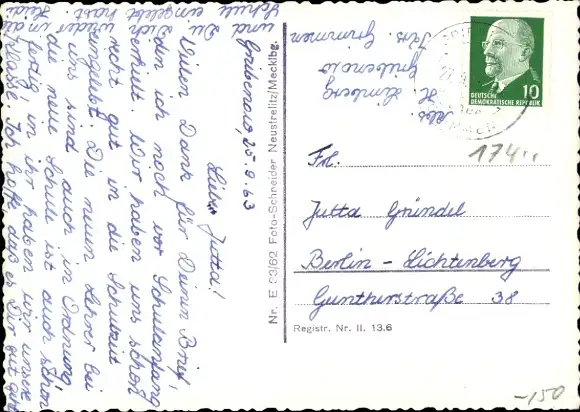 Grabenow, 25.9.63
Liebe Jutta!
Vielen Dank für Deinen Brief,
den ich noch vor Schulanfang
erhielt. Wir haben uns schon
recht gut in die Schulzeit
eingelebt. Die neuen Lehrer bei
uns sind auch in Ordnung,
die neue Schule ist auch schon
fertig, in ihr haben wir unsere
Ich hoffe, daß es Dir gut geht
und Du Dich wieder in die
Schule eingelebt hast.
Nr. E 33/62 Foto-Schneider Neustrelitz/Mecklbg.
Abs.
H. Limberg
Grabenow
Krs. Grimmen
DEUTSCHE
DEMOKRATISCHE REPUBLIK
10
174..
Frl.
Jutta Gründel
Berlin - Lichtenberg
Guntherstraße 38
Registr. Nr. II. 13.6
-150